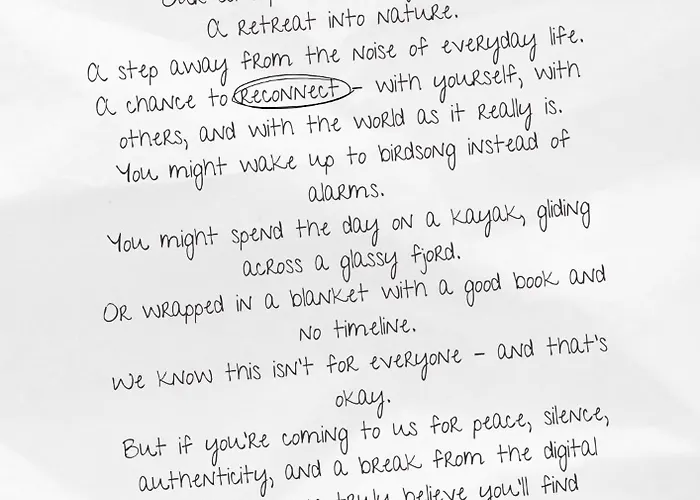 a retreat into nature.
A step away from the noise of everyday life.
A chance to reconnect – with yourself, with
others, and with the world as it really is.
You might wake up to birdsong instead of
alarms.
You might spend the day on a kayak, gliding
across a glassy fjord.
Or wrapped in a blanket with a good book and
no timeline.
We know this isn't for everyone – and that's
okay.
But if you're coming to us for peace, silence,
authenticity, and a break from the digital
truly believe you'll find